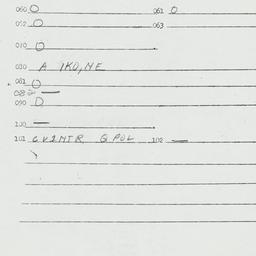 060 O 061 O
062 O 063
070 O
080 A IKO,NE
081 O
082 —
090 O
100 —
101 CVINTR GPOL 102 —